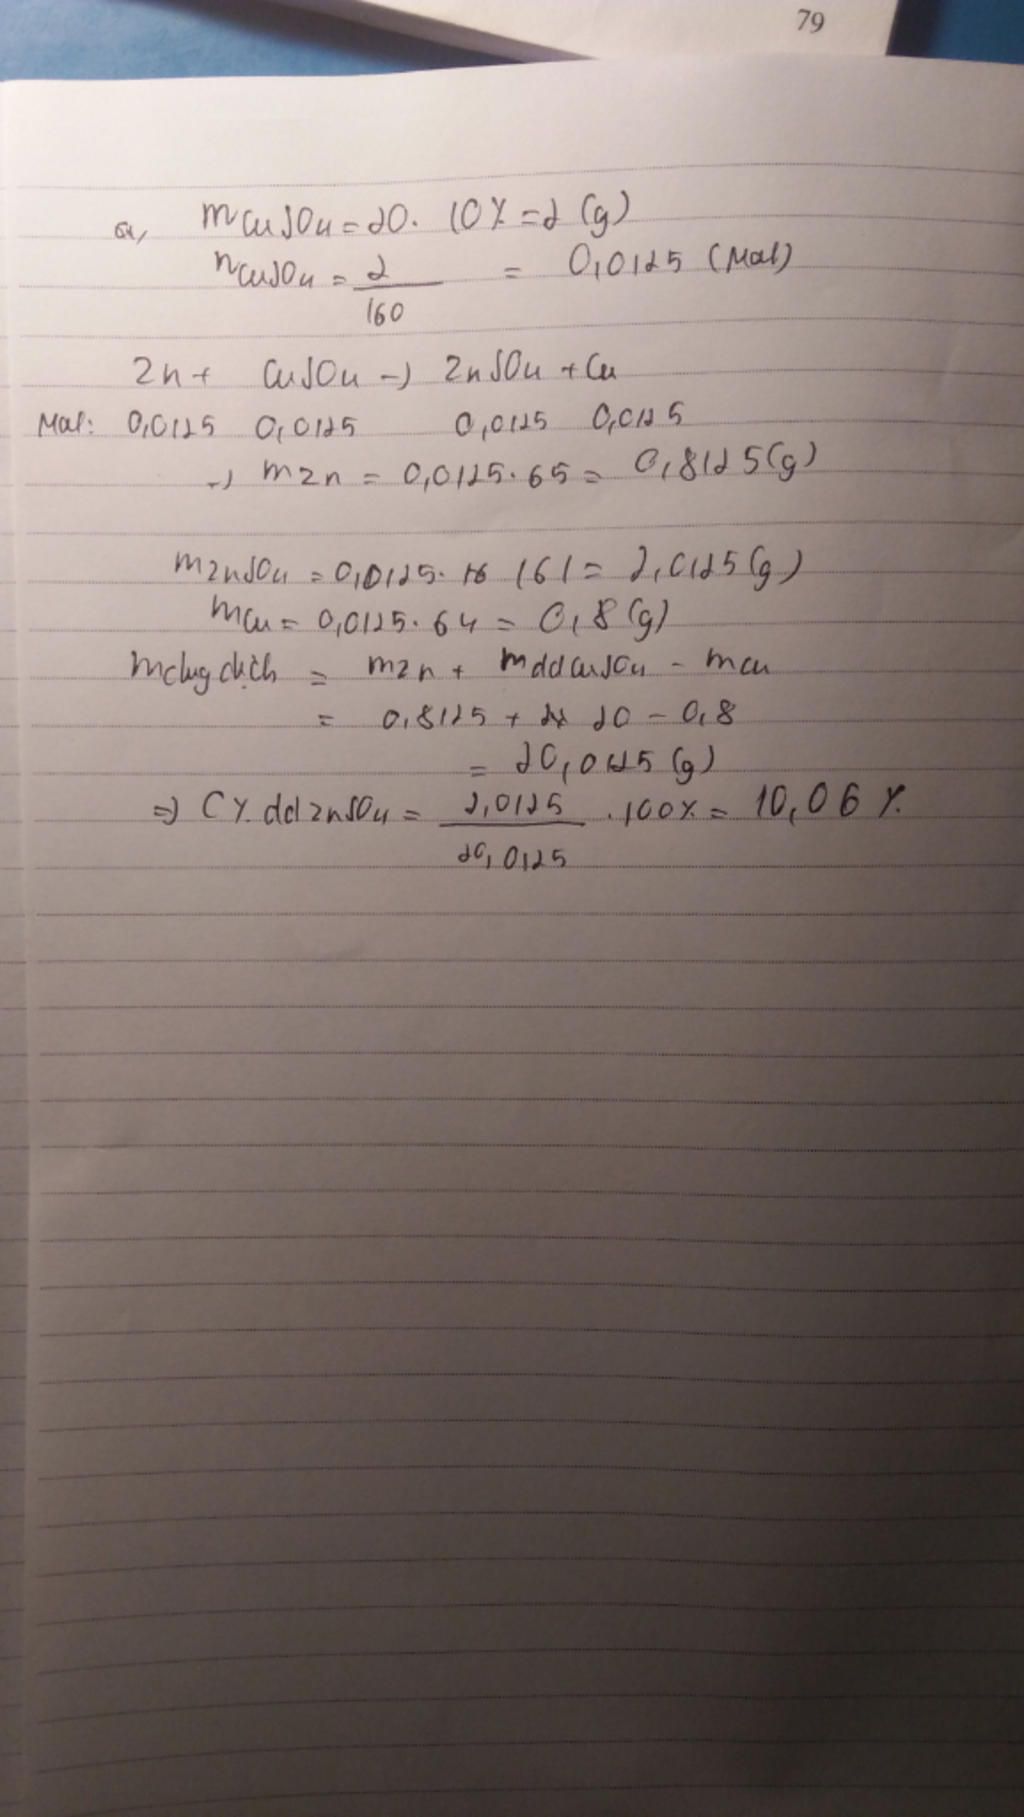 79
a, mCuSO4 = 20. 10% = 2 (g)
nCuSO4 = 2/160 = 0,0125 (Mol)
Zn + CuSO4 → ZnSO4 + Cu
Mol: 0,0125 0,0125 0,0125 0,0125
→ mZn = 0,0125.65 = 0,8125(g)
mZnSO4 = 0,0125. 161 = 2,0125(g)
mCu = 0,0125.64 = 0,8(g)
mdung dịch = mZn + mddCuSO4 - mCu
= 0,8125 + 20 - 0,8
= 20,0125(g)
=> C% ddZnSO4 = 2,0125/20,0125 .100% = 10,06%